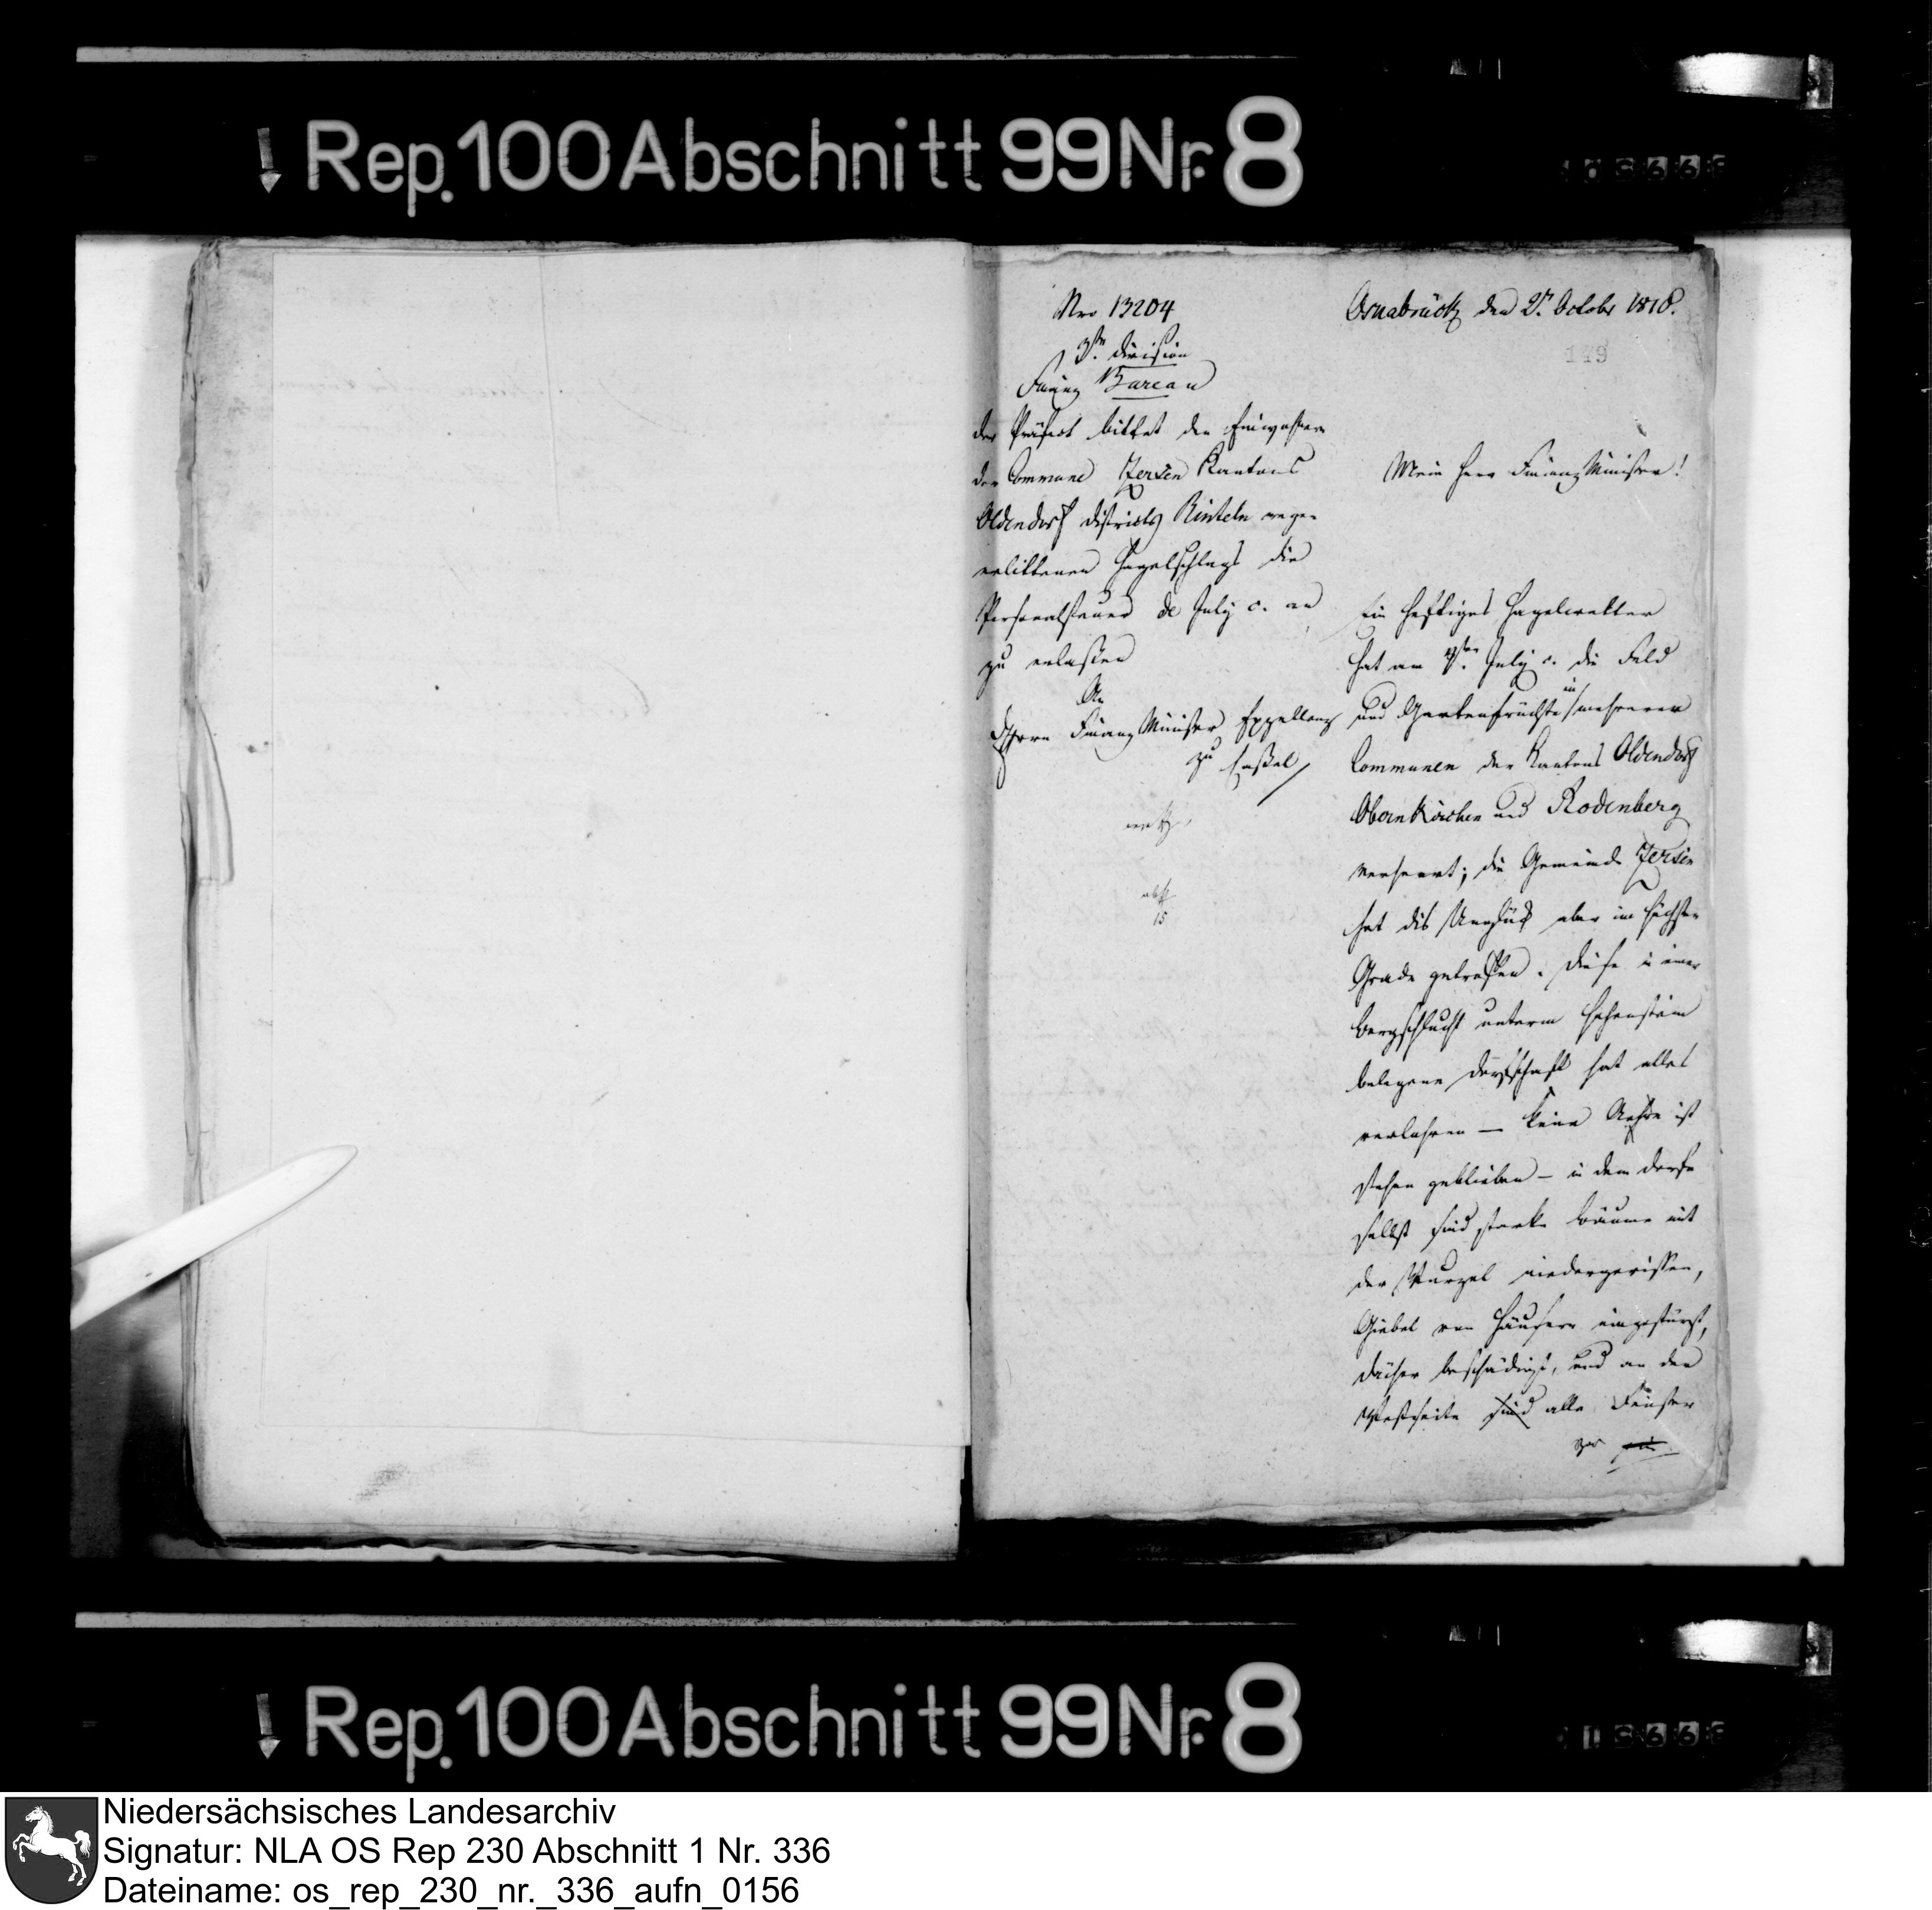 Rep. 100 Abschnitt 99 Nr. 8
Nro 13204
3te Division
Finanz Bureau
der Präfect bittet den Einwohnern
der Commune Zersen Kantons
Oldendorf Districts Rinteln wegen
erlittenen Hagelschlags die
Personalsteuer de July c. an
zu erlaßen
An
Herrn Finanz Minister Excellenz
zu Caßel
15
Osnabrück den 2t. October 1810.
149
Mein Herr Finanz Minister!
Ein heftiges Hagelwetter
hat am ten July c. die Feld
und Gartenfrüchte in mehreren
Communen der Kantons Oldendorf
Obernkirchen und Rodenberg
verheert; die Gemeinde Zersen
hat dis Unglück aber im höchsten
Grade getroffen. Diese in einer
Bergschlucht unterm Hohenstein
belegene Dorfschaft hat alles
verlohren — keine Aehre ist
stehen geblieben — in dem Dorfe
selbst sind starke Bäume mit
der Wurzel niedergerissen,
Giebel von Häusern eingestürzt,
Dächer beschädigt, und an der
Westseite sind alle Fenster
Rep. 100 Abschnitt 99 Nr. 8
Niedersächsisches Landesarchiv
Signatur: NLA OS Rep 230 Abschnitt 1 Nr. 336
Dateiname: os_rep_230_nr._336_aufn_0156